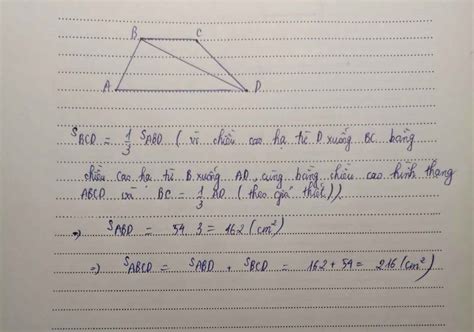 B C
A D
S_BCD = 1/3 S_ABD ( vì chiều cao hạ từ D xuống BC bằng
chiều cao hạ từ B xuống AD, cùng bằng chiều cao hình thang
ABCD và BC = 1/3 AD ( theo giả thiết)).
=> S_ABD = 54 . 3 = 162 (cm²)
=> S_ABCD = S_ABD + S_BCD = 162 + 54 = 216 (cm²)